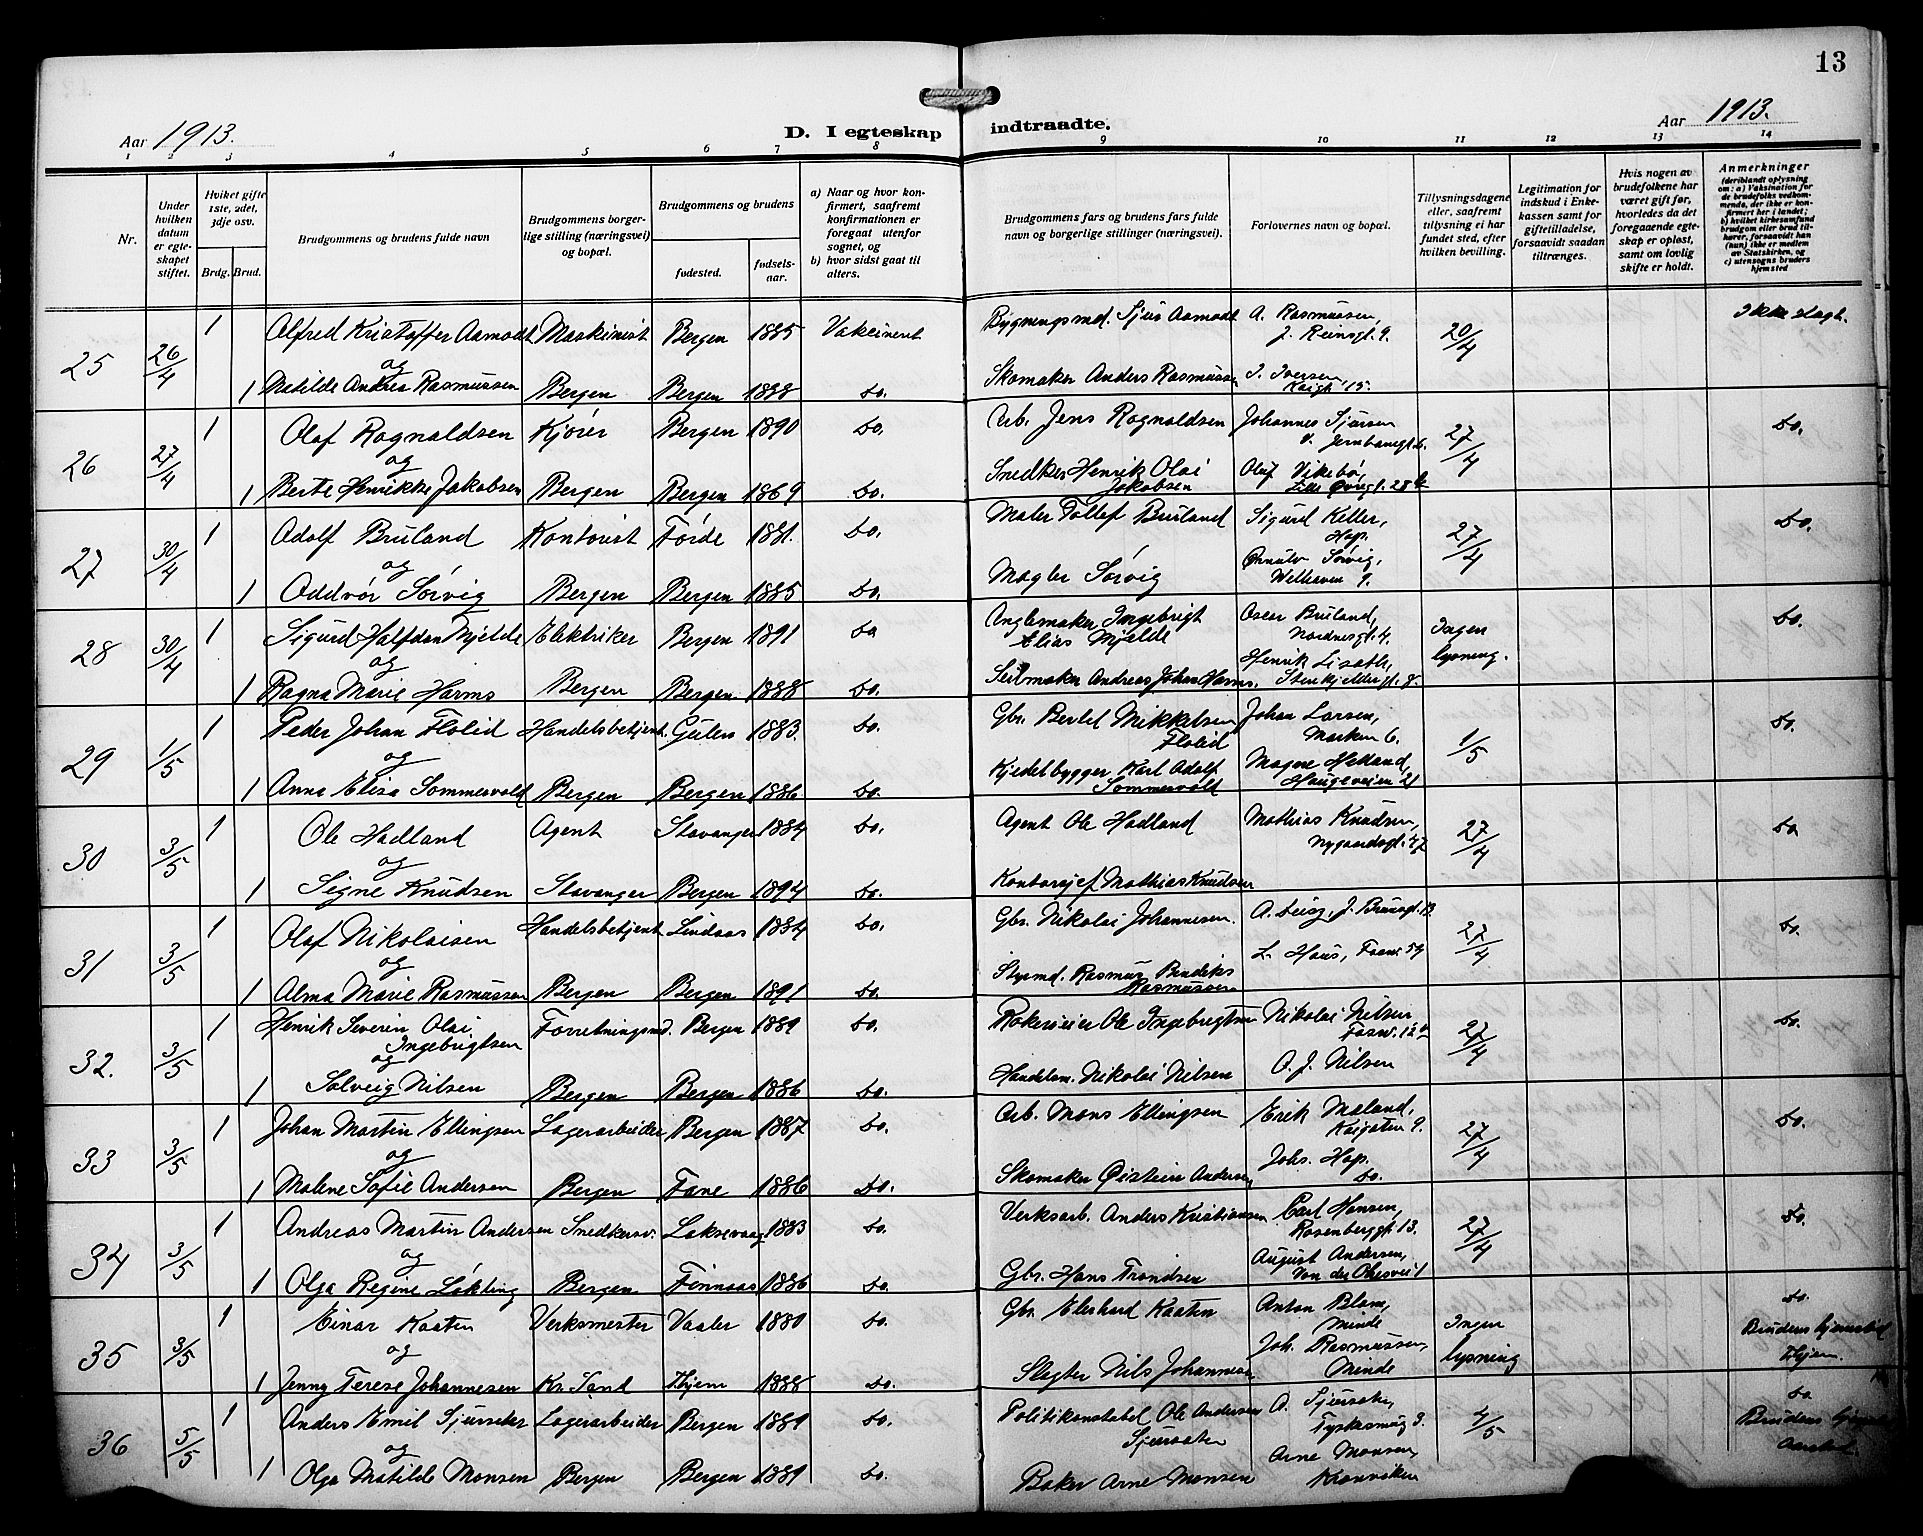 13
Aar 1913.
D. I egteskap indtraadte.
Aar 1913.
1 2 3 4 5 6 7 8 9 10 11 12 13 14
Nr.
Under hvilken datum er egteskapet stiftet.
Hviket gifte 1ste, 2det, 3dje osv.
Brdg. Brud.
Brudgommens og brudens fulde navn
Brudgommens borgerlige stilling (næringsvei) og bopæl.
Brudgommens og brudens
fødested.
fødselsaar.
a) Naar og hvor konfirmert, saafremt konfirmationen er foregaat utenfor sognet, og
b) hvor sidst gaat til alters.
Brudgommens fars og brudens fars fulde navn og borgerlige stillinger (næringsvei).
Forlovernes navn og bopæl.
Tillysningsdagene eller, saafremt tillysning ei har fundet sted, efter hvilken bevilling.
Legitimation for indskud i Enkekassen samt for giftetilladelse, forsaavidt saadan tiltrænges.
Hvis nogen av brudefolkene har været gift før, hvorledes da det foregaaende egteskap er opløst, samt om lovlig skifte er holdt.
Anmerkninger
(deriblandt oplysning om: a) Vaksination for de brudefolks vedkommende, der ikke er konfirmert her i landet; b) hvilket kirkesamfund brudgom eller brud tilhører, forsaavidt han (hun) ikke er medlem av Statskirken, og c) utensogns bruders hjemsted
25 26/4 1 Alfred Kristoffer Aamodt Maskinist Bergen 1885 Vakcinert Bygningsmd. Sjur Aamodt A. Rasmussen, J. Reinsgt. 9. 20/4 Ikke slagt.
og
1 Matilde Andrea Rasmussen Bergen Bergen 1888 do. Skomaker Anders Rasmussen J. Iversen Kaigt. 15.
26 27/4 1 Olaf Ragnaldsen Kjører Bergen 1890 do. Arb. Jens Ragnaldsen Johannes Sjursen Jernbanegt. 6. 27/4 do.
og
1 Berte Henrikke Jakobsen Bergen Bergen 1869 do. Snedker Henrik Olai Jakobsen Oluf Vikebø, Lille Øvregt. 28
27 30/4 1 Adolf Bruland Kontorist Førde 1881. do. Maler Tollef Bruland Sigurd Keller, Hop. 27/4 do.
og
1 Oddvør Sørvig Bergen Bergen 1885 do. Mægler Sørvig Ørnulv Sørvig, Welhaven 9.
28 30/4 1 Sigurd Halfdan Mjelde Elektriker Bergen 1891 do Anglemaker Ingebrigt Elias Mjelde Oscar Bruland, Nordnesgt. 4. Ingen lysning. do.
og
1 Ragna Marie Harms Bergen Bergen 1888 do. Seilmaker Andreas Johan Harms. Henrik Lisæth, Stenkjeldergt. 8.
29 1/5 1 Peder Johan Flolid Handelsbetjent. Gulen 1883. do Gbr. Bertel Mikkelsen Flolid Johan Larsen, Marken 6. 1/5 do.
og
1 Anna Elisa Sommervold Bergen Bergen 1886. do. Kjedelbygger Karl Adolf Sommervold Magne Helland, Haugeveien 21
30 3/5 1 Ole Hadland Agent Stavanger 1884 do. Agent Ole Hadland Mathias Knudsen, Nygaardsgt. 47 27/4 do
og
1 Signe Knudsen Stavanger Bergen 1894 do. Kontorsjef Mathias Knudsen
31 3/5 1 Olaf Nikolaisen Handelsbetjent Lindaas 1884 do. Gbr. Nikolai Johannesen. 27/4 do.
og
1 Alma Marie Rasmussen Bergen Bergen 1891 do. Styrmd. Rasmus Bendiks Rasmussen L. Haus, Fosw. 54
32. 3/5 1 Henrik Severin Olai Ingebrigtsen Forretningsmd. Bergen 1889 do. Røkerieier Ole Ingebrigtsen Nikolai Nilsen Fosw. 12 27/4 do
og
1 Solveig Nilsen Bergen Bergen 1886 do. Handelsm. Nikolai Nilsen O. J. Nilsen
33 3/5 1 Johan Martin Ellingsen Lagerarbeider Bergen 1887 do. Arb. Mons Ellingsen Erik Møland, Kaigaten 9. 27/4 do.
og
1 Malene Sofie Andersen Bergen Fane 1886 do. Skomaker Øistein Andersen Johs. Hop. do.
34 3/5 1 Andreas Martin Andersen Snedkersv. Laksevaag 1883 do. Verksarb. Anders Kristiansen Carl Hansen, Rosenberggt. 13. 27/4 do.
og
1 Olga Regine Løkting Bergen Finnaas 1886 do. Gbr. Hans Trondsen August Andersen, Von der Ohesvei 1
35 3/5 1 Einar Kaaten Verksmester Vaaler 1880 do. Gbr Eberhard Kaaten Anton Blom, Minde Ingen lysning do. Brudens hjemsted
og
1 Jenny Terese Johannesen Kr. Sand 1888 do. Slagter Nils Johannesen Joh. Rasmussen, Minde
36 5/5 1 Anders Emil Sjursæter Lagerarbeider Bergen 1889 do. Politikonstabel Ole Andersen Sjursæter A. Sjursæter, Tyskesmug 3. 4/5 do. Brudens hjemsted
og
1 Olga Matilde Monsen Bergen Bergen 1889 do. Baker Arne Monsen Arne Monsen, Kronviken